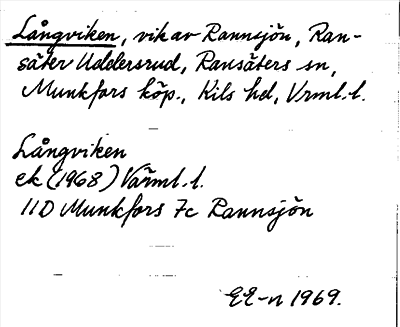 Långviken, vik av Rannsjön, Ran-
säter Uddersrud, Ransäters sn,
Munkfors köp., Kils hd, Vrml. l.
Långviken
ek (1968) Värml. l.
11D Munkfors 7c Rannsjön
EE-n 1969.